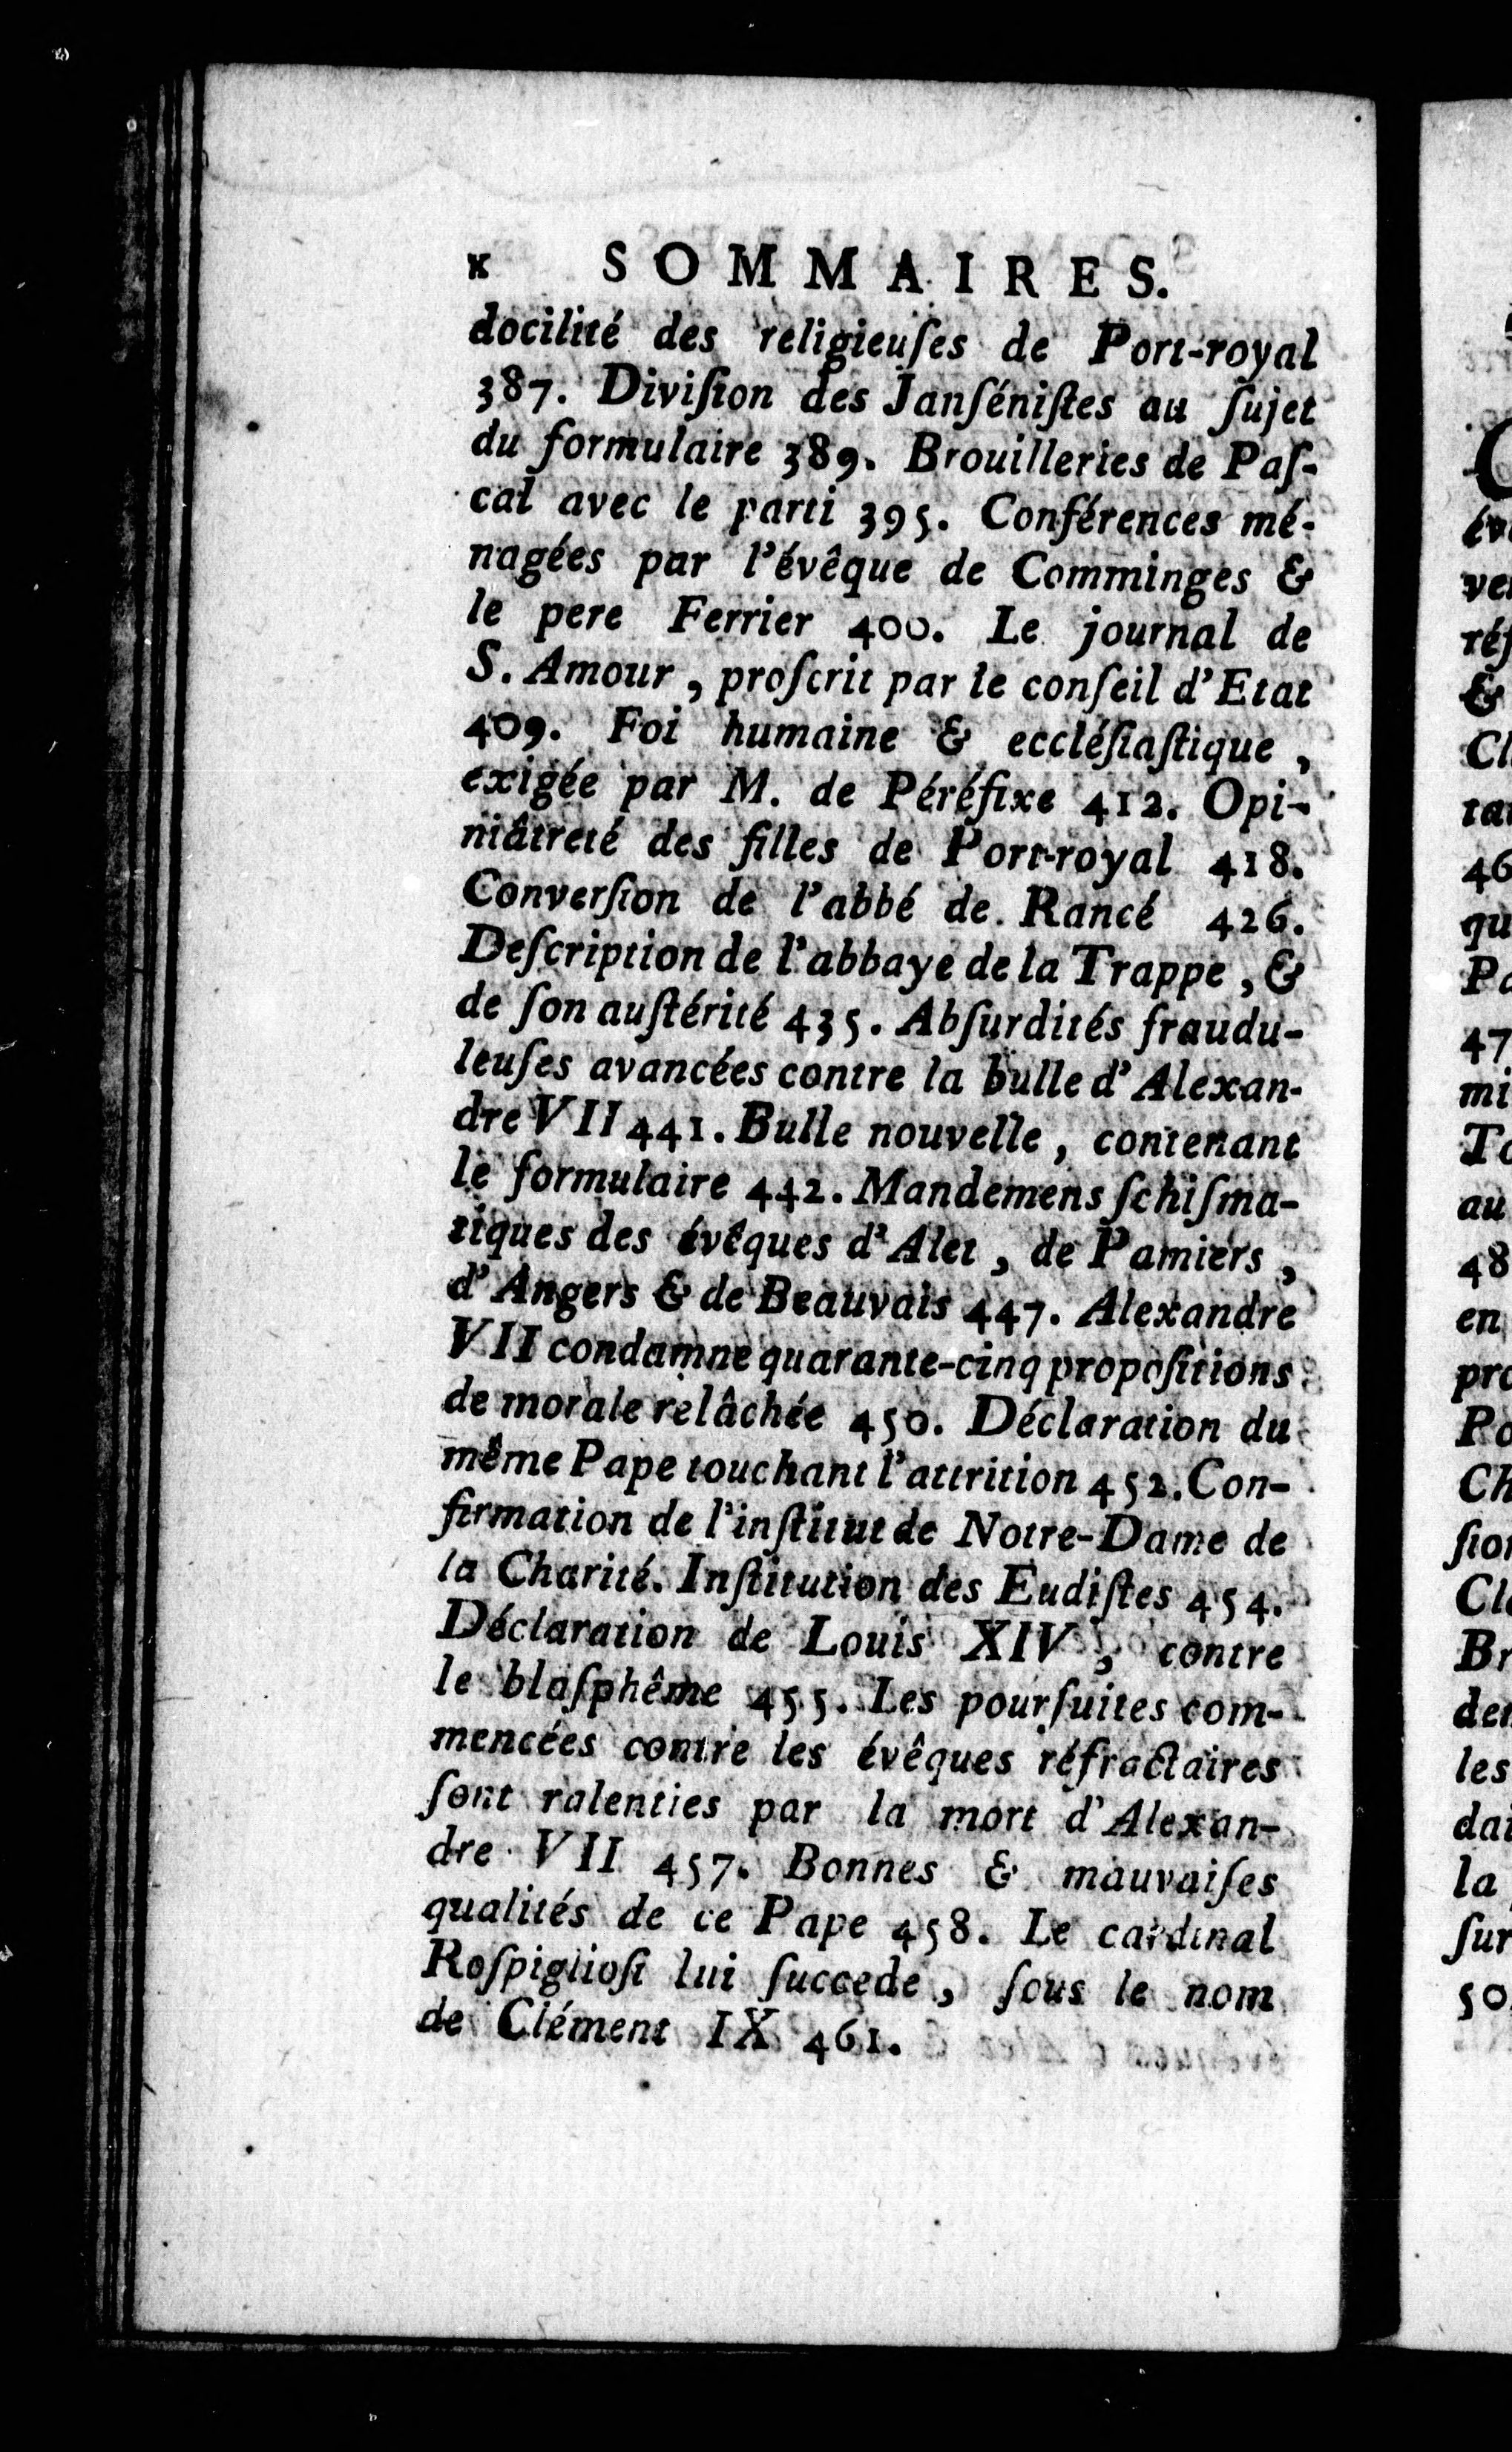 x SOMMAIRES.
docilité des religieuſes de Port-royal
387. Diviſion des Janſéniſtes au ſujet
du formulaire 389. Brouilleries de Paſ-
cal avec le parti 395. Conférences mé-
nagées par l'évêque de Comminges &
le pere Ferrier 400. Le journal de
S. Amour, proſcrit par le conſeil d'Etat
409. Foi humaine & eccléſiaſtique,
exigée par M. de Péréfixe 412. Opi-
niâtreté des filles de Port-royal 418.
Converſion de l'abbé de Rancé 426.
Deſcription de l'abbaye de la Trappe, &
de ſon auſtérité 435. Abſurdités fraudu-
leuſes avancées contre la bulle d'Alexan-
dre VII 441. Bulle nouvelle, contenant
le formulaire 442. Mandemens ſchiſma-
tiques des évêques d'Alet, de Pamiers,
d'Angers & de Beauvais 447. Alexandre
VII condamne quarante-cinq propoſitions
de morale relâchée 450. Déclaration du
même Pape touchant l'attrition 452. Con-
firmation de l'inſtitut de Notre-Dame de
la Charité. Inſtitution des Eudiſtes 454.
Déclaration de Louis XIV, contre
le blaſphême 455. Les pourſuites com-
mencées contre les évêques réfractaires
ſont ralenties par la mort d'Alexan-
dre VII 457. Bonnes & mauvaiſes
qualités de ce Pape 458. Le cardinal
Roſpiglioſi lui ſuccede, ſous le nom
de Clément IX 461.
év
ve
réſ
&
Cl
ta
46
qu
Pa
47
mi
To
au
48
en
pro
Po
Ch
ſio
Cl
Br
de
les
da
la
ſur
50